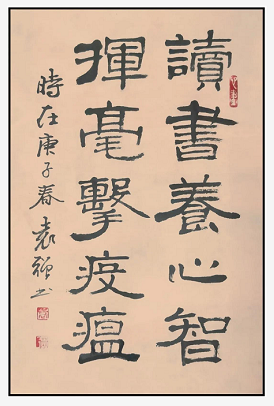 讀書養心智
揮毫擊疫瘟
時在庚子春袁輝书